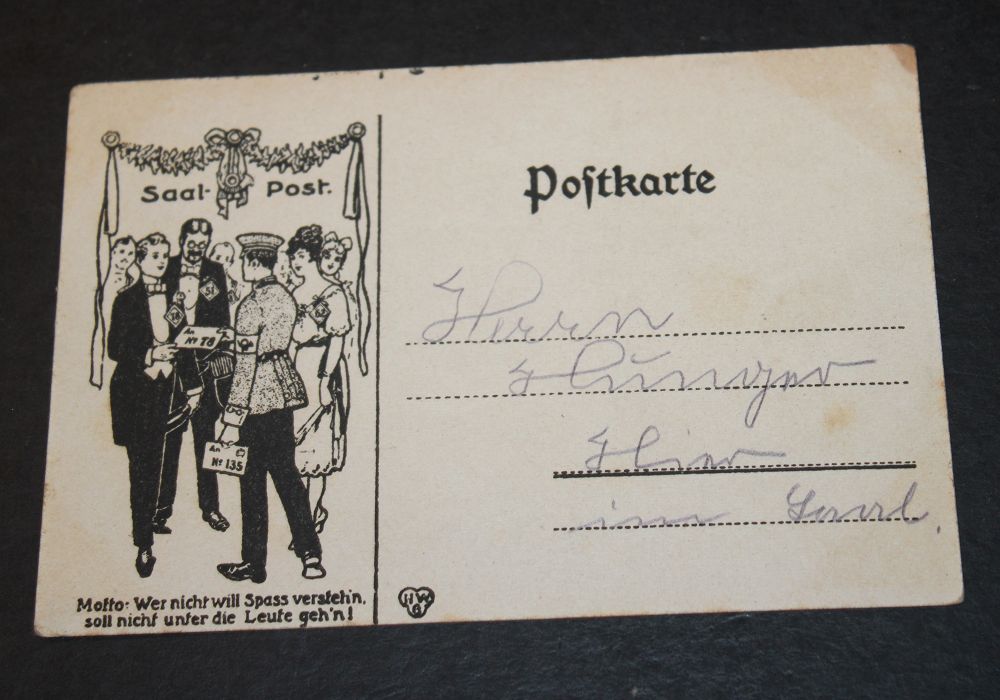 Saal- Post.
18
51
62
An
No 78
An
No 135
Motto: Wer nicht will Spass versteh'n,
soll nicht unter die Leute geh'n!
Postkarte
Herrn
Hunger
Hier
im Saal.
HWB